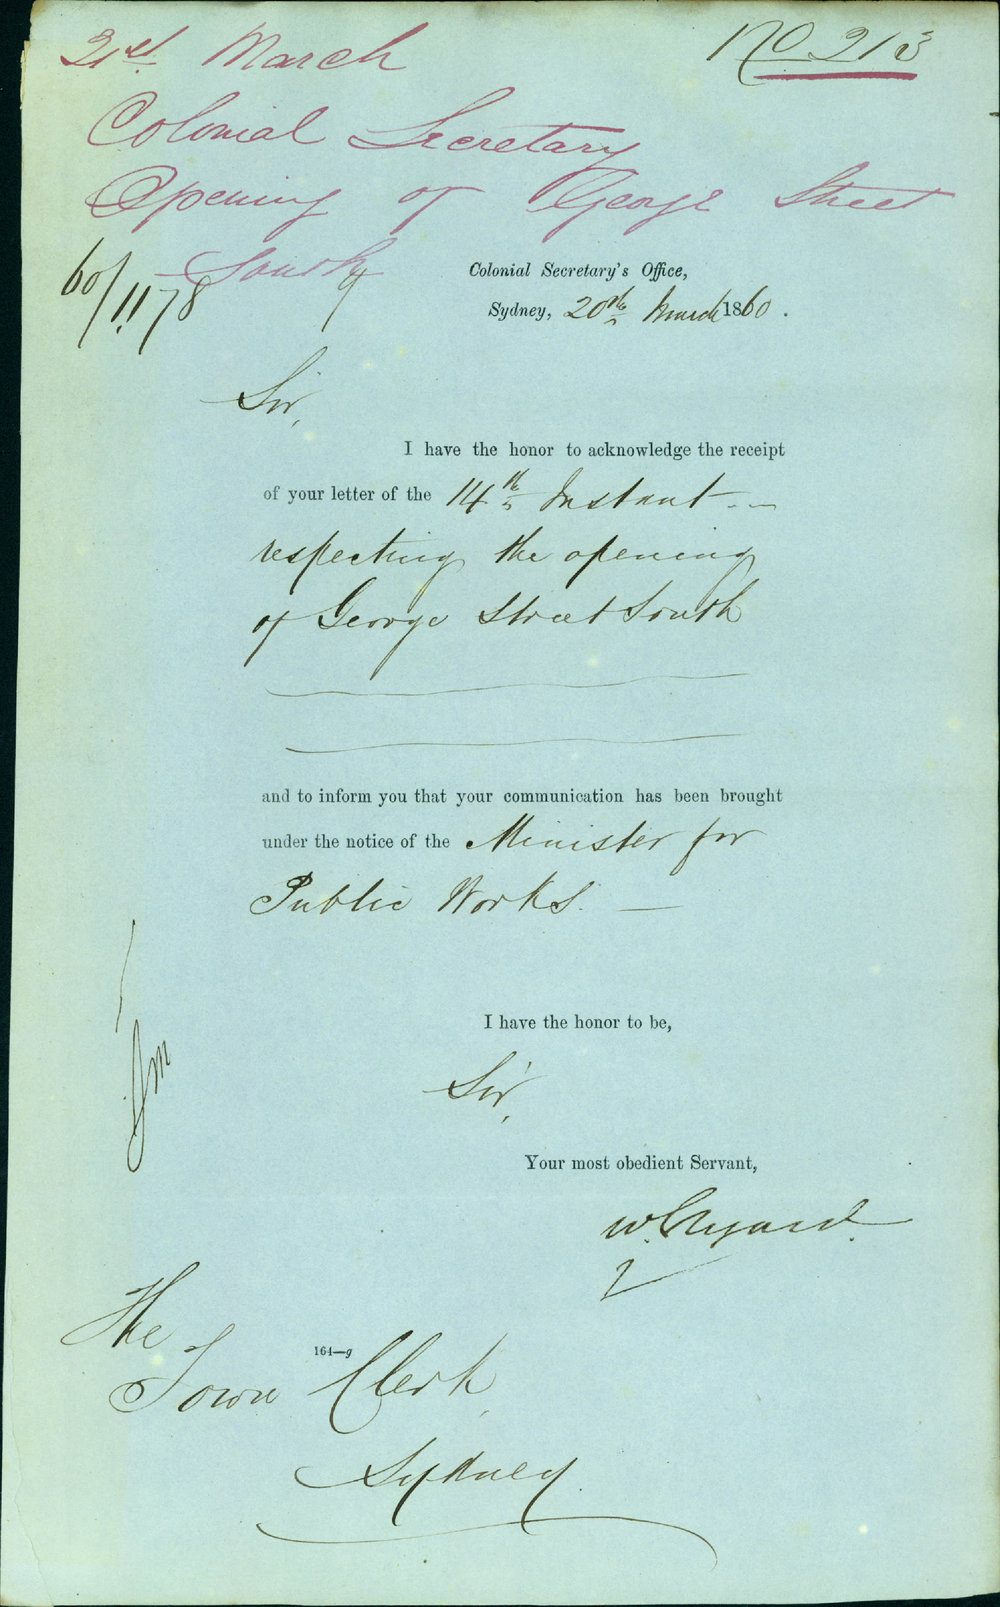 No 213
21st March
Colonial Secretary
Opening of George Street
South
60/1178
Colonial Secretary's Office,
Sydney, 20th March 1860.
Sir,
I have the honor to acknowledge the receipt
of your letter of the 14th Instant
respecting the opening
of George Street South
and to inform you that your communication has been brought
under the notice of the Minister for
Public Works. —
I have the honor to be,
Sir,
Your most obedient Servant,
The
164—g
Town Clerk,
Sydney.